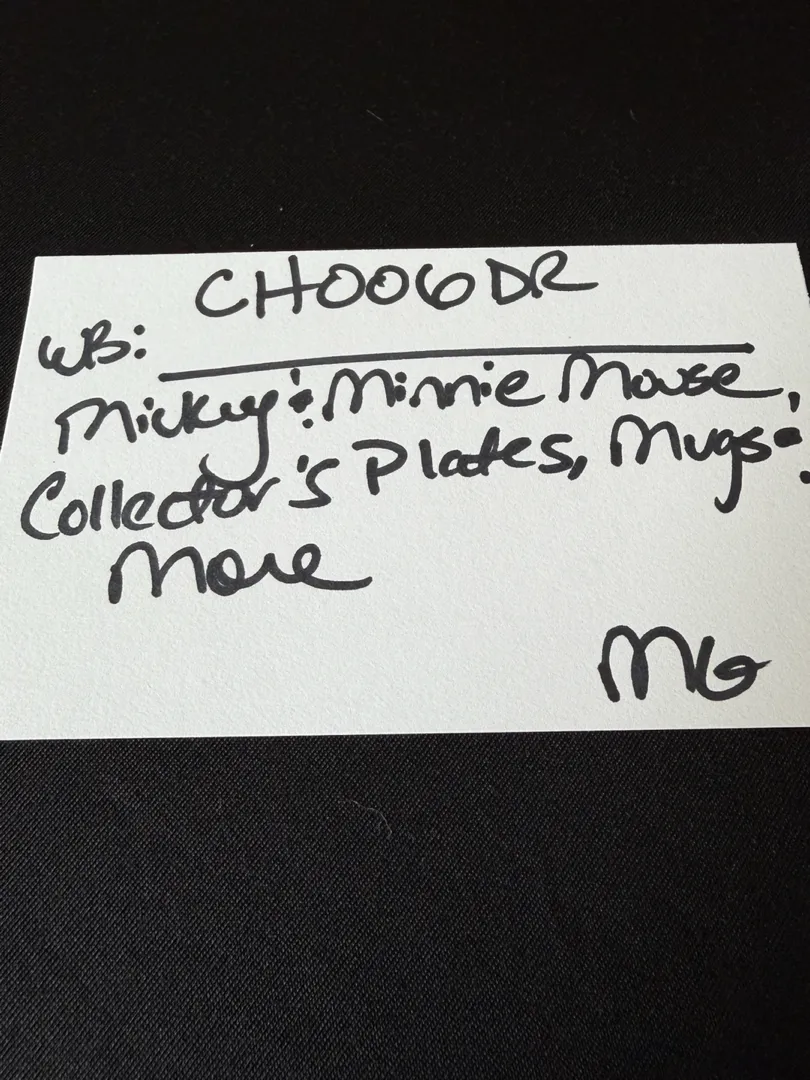 CH006DR
WB:
Mickey & Minnie Mouse,
Collector's Plates, Mugs &
More
MG